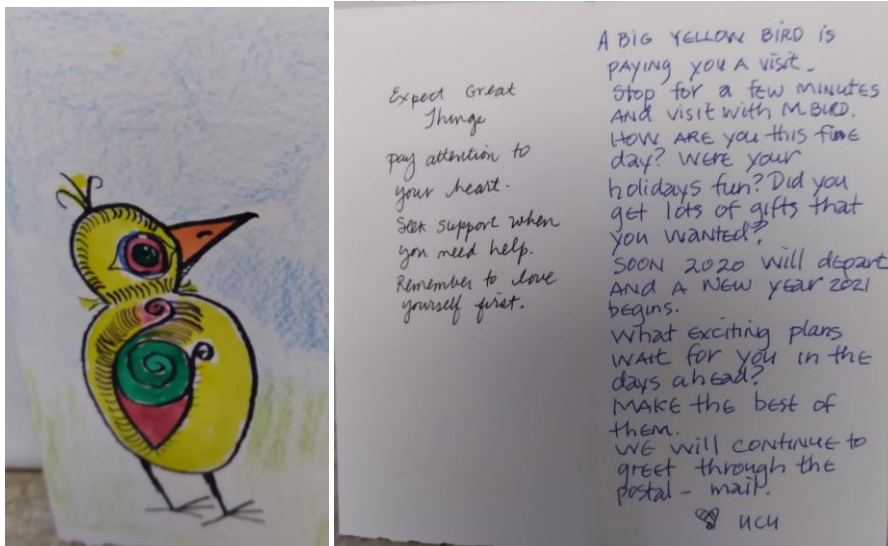 Expect Great
Things
pay attention to
your heart.
Seek support when
you need help.
Remember to love
yourself first.
A BIG YELLOW BIRD is
PAYING YOU A visit.
Stop for a few MINUTES
AND visit with M BIRD.
HOW ARE you this fine
day? WERE your
holidays fun? Did you
get lots of gifts that
you WANTED?
SOON 2020 will depart
AND A NEW year 2021
begins.
What Exciting plans
WAit for you in the
days ahead?
MAKE the best of
them.
WE will CONTINUE to
greet through the
postal - mail.